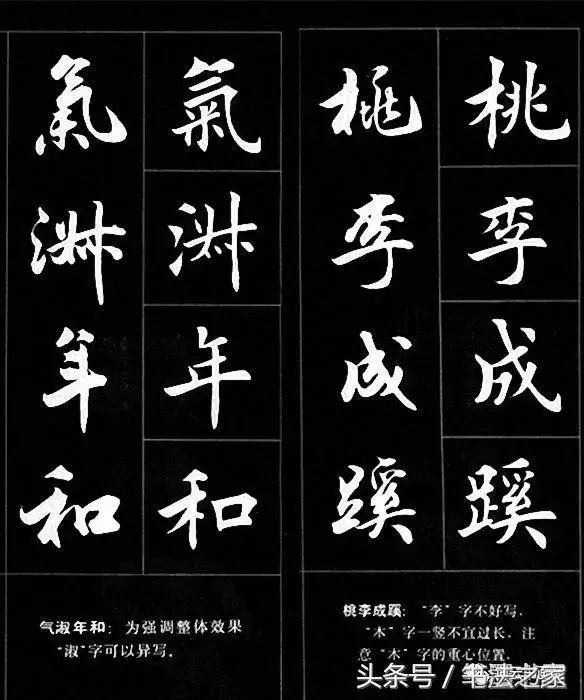 桃李成蹊
桃李成蹊
氣淑年和
氣淑年和
桃李成蹊：“李”字不好写，
“木”字一竖不宜过长，注
意“木”字的重心位置。
气淑年和：为强调整体效果
“淑”字可以异写。
头条号／书法之家